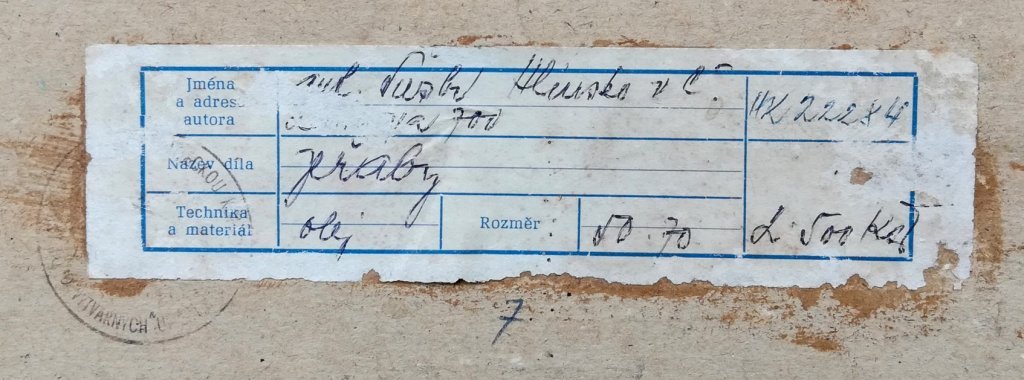 Jména
a adresa
autora
Hlinsko v Č.
700
HK 222 84
Název díla
jeřáby
Technika
a materiál
olej
Rozměr
50 70
2.500 Kčs
7
VÝTVARNÝCH